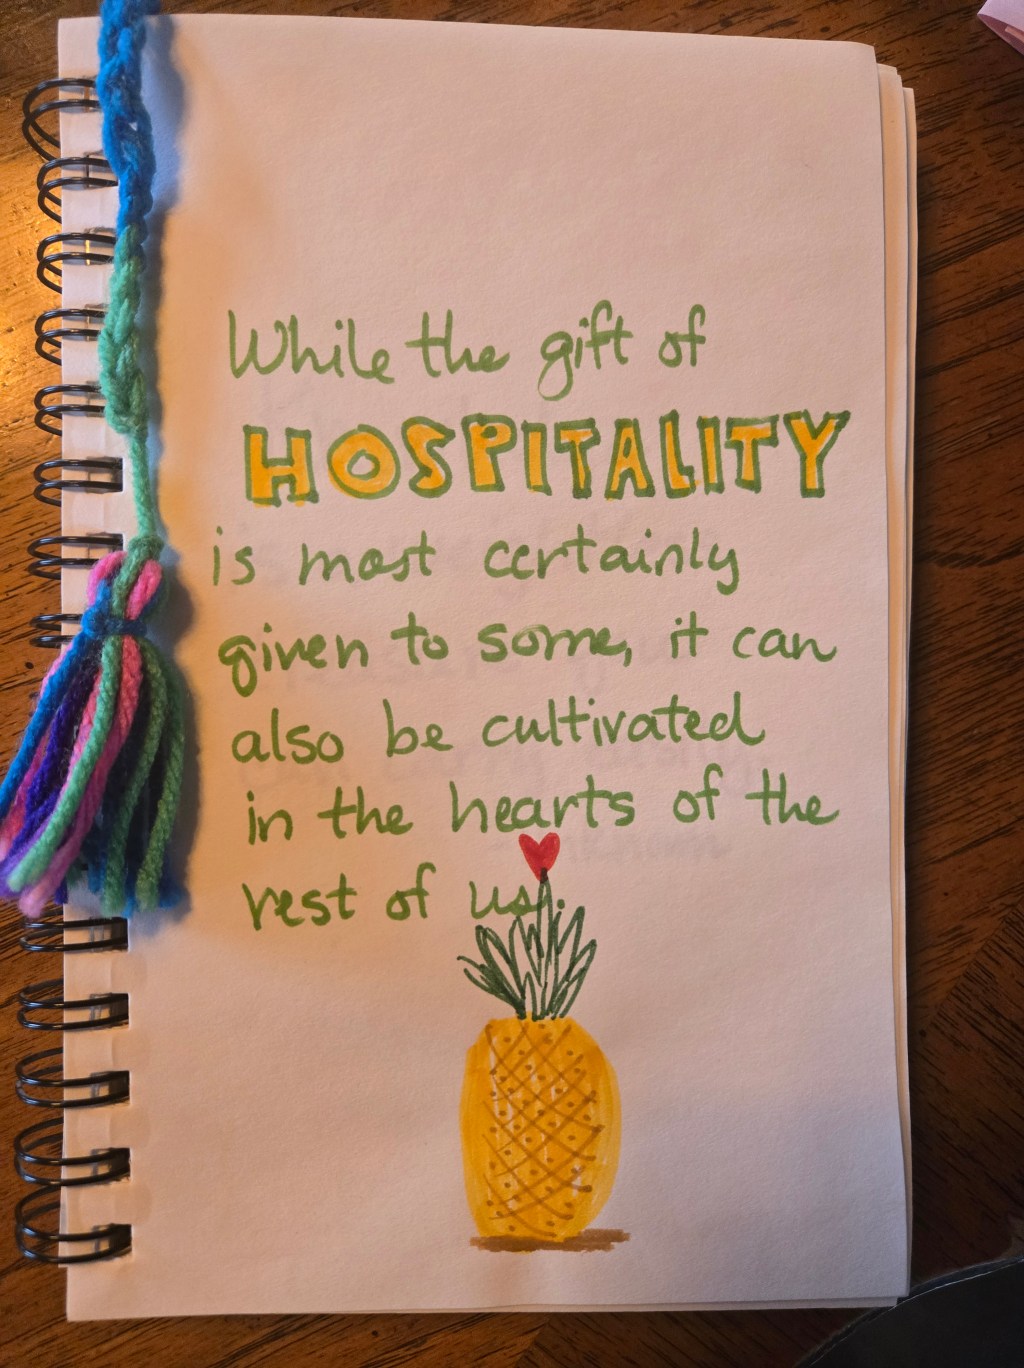 While the gift of
HOSPITALITY
is most certainly
given to some, it can
also be cultivated
in the hearts of the
rest of us.